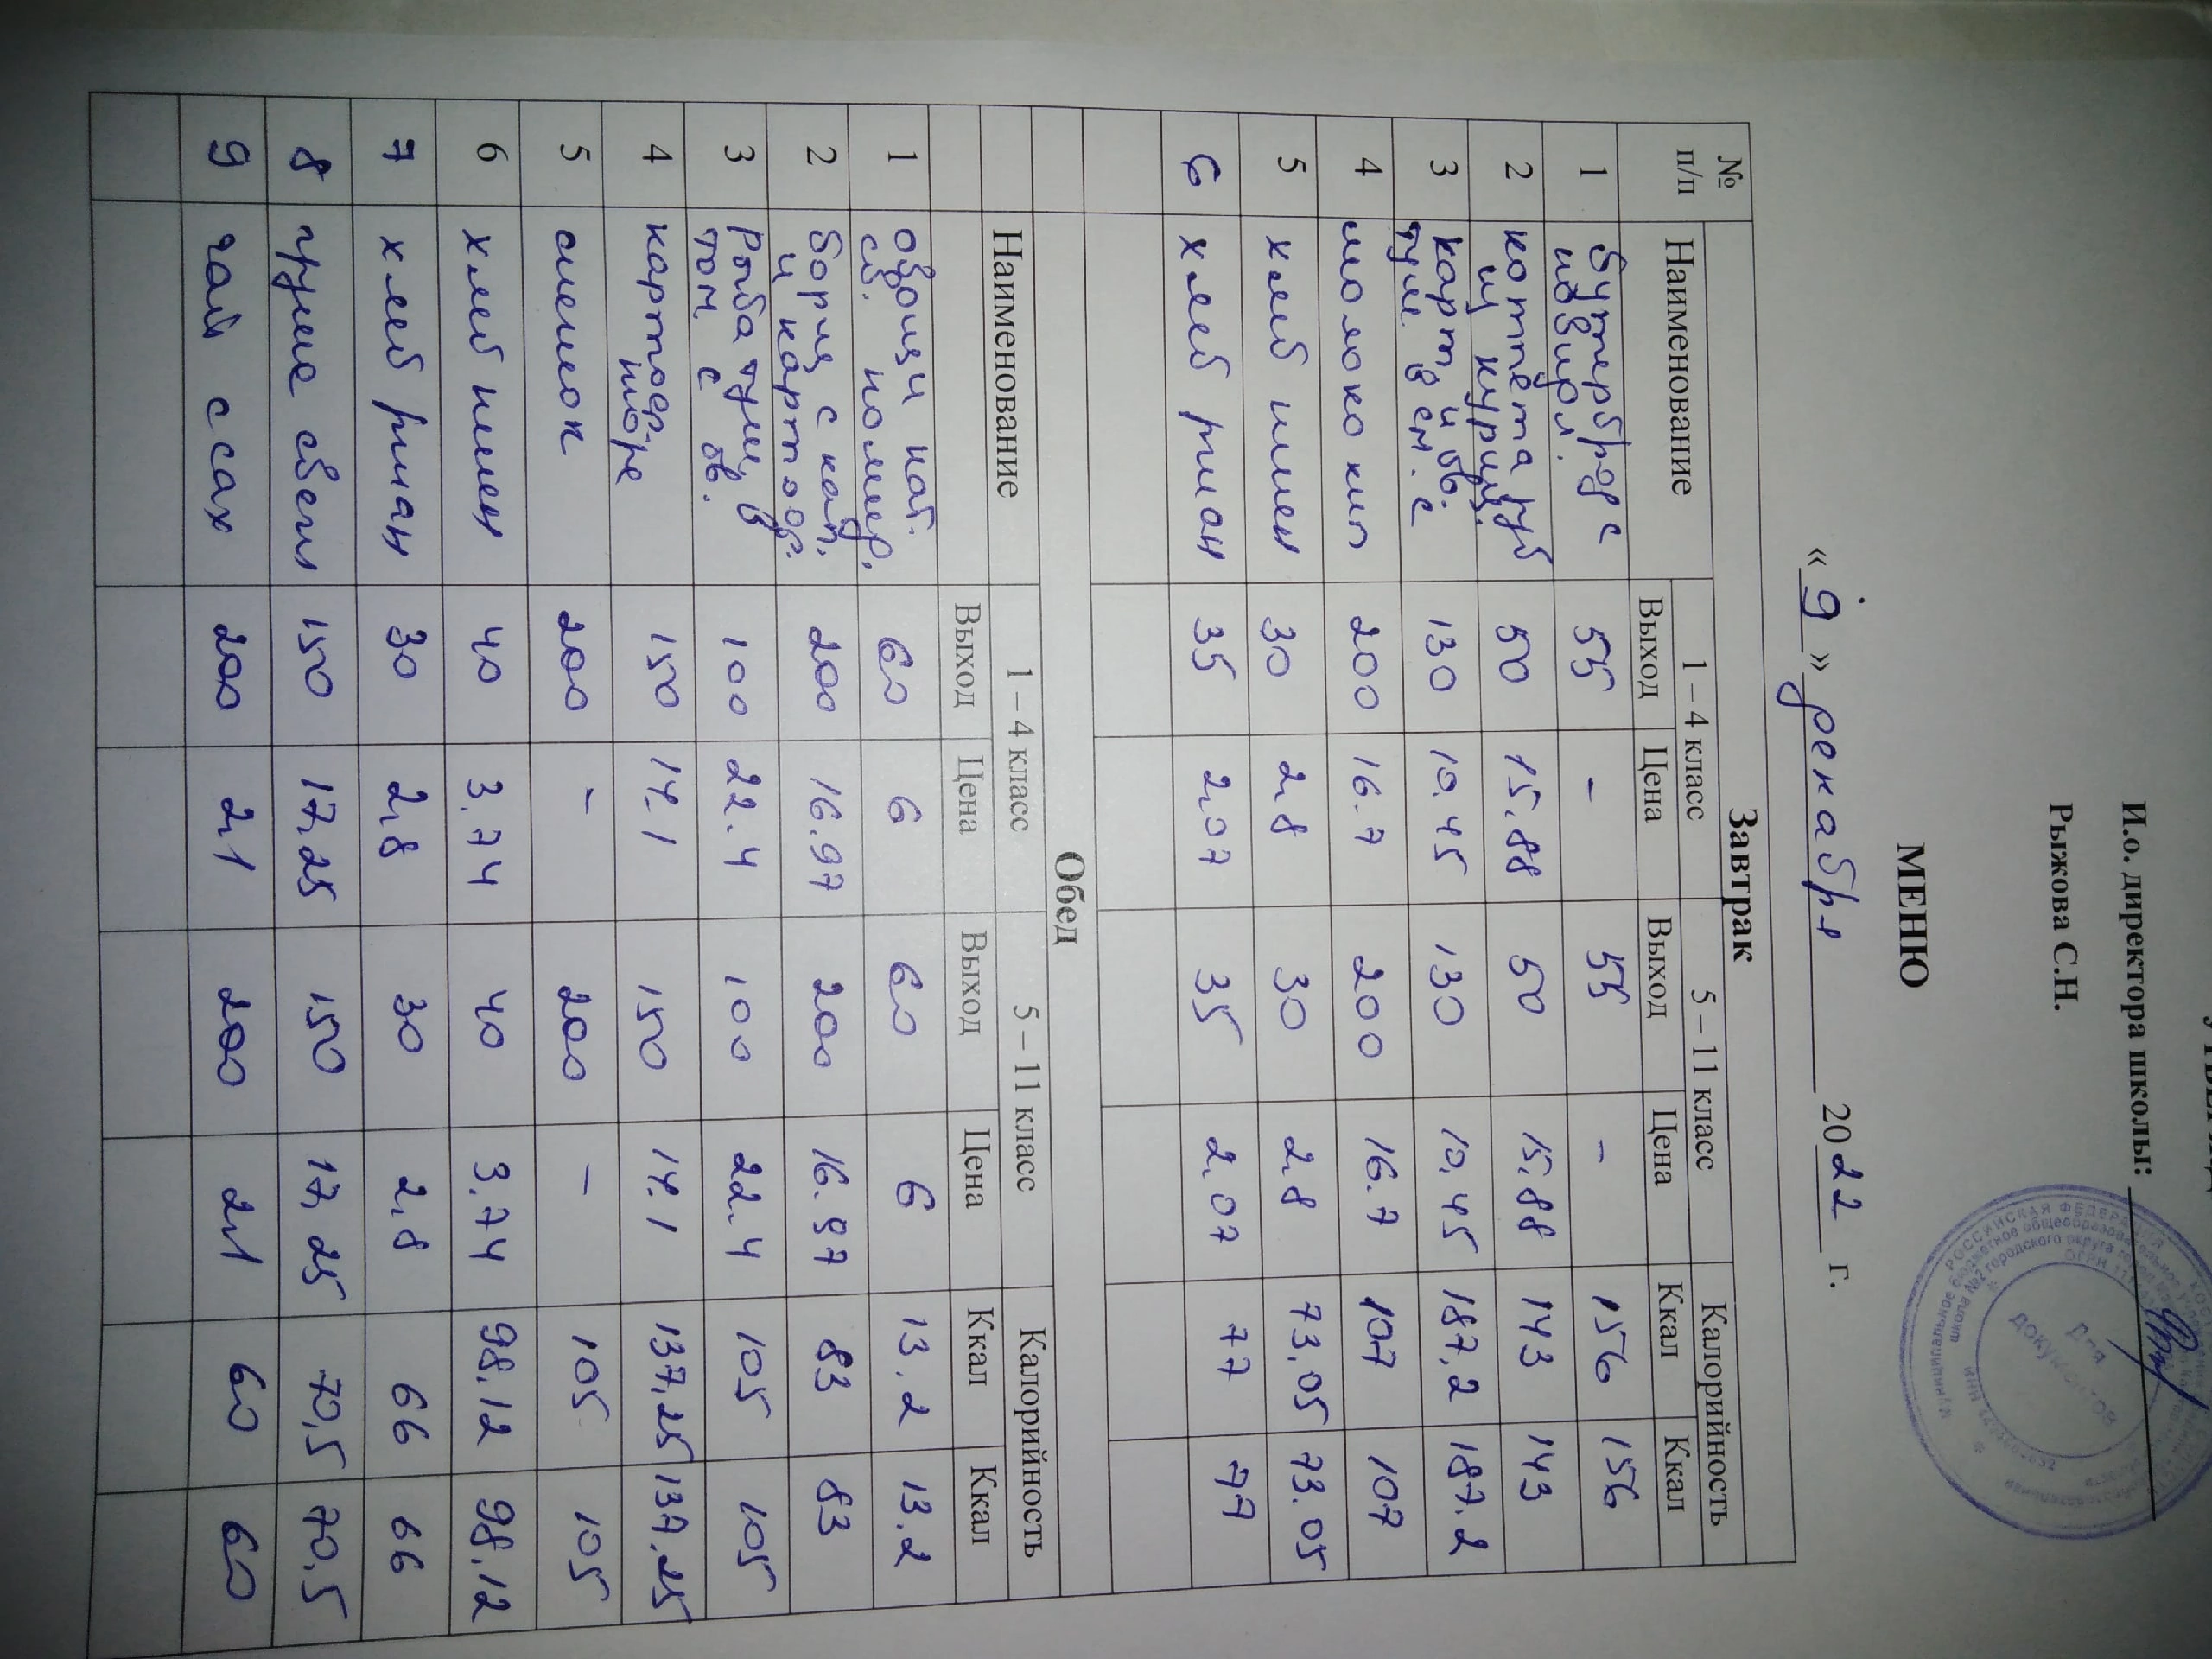 И.о. директора школы:
Рыжова С.Н.
РОССИЙСКАЯ ФЕДЕРАЦИЯ
для
документов
МЕНЮ
« 9 » декабря 2022 г.
Завтрак
№ п/п Наименование 1 – 4 класс 5 – 11 класс Калорийность
Выход Цена Выход Цена Ккал Ккал
1 бутерброд с
повидл. 55 - 55 - 156 156
2 коттлета руб
из куриц. 50 15.88 50 15.88 143 143
3 карт и ов.
туш в см. с 130 10.45 130 10.45 187,2 187.2
4 молоко кип 200 16.7 200 16.7 107 107
5 хлеб пшен 30 2.8 30 2.8 73.05 73.05
6 хлеб ржан 35 2.07 35 2.07 77 77
Обед
Наименование 1 – 4 класс 5 – 11 класс Калорийность
Выход Цена Выход Цена Ккал Ккал
1 овощи нат.
св. помидр. 60 6 60 6 13.2 13.2
2 борщ с кап.
и картоф. 200 16.97 200 16.97 83 83
3 Рыба тушц в
том с ов. 100 22.4 100 22.4 105 105
4 картоф.
пюре 150 14.1 150 14.1 137,25 137.25
5 200 - 200 - 105 105
6 хлеб пшен 40 3.74 40 3.74 98.12 98.12
7 хлеб ржан 30 2.8 30 2.8 66 66
8 груша свеж 150 17.25 150 17.25 70,5 70.5
9 чай с сах 200 2.1 200 2.1 60 60